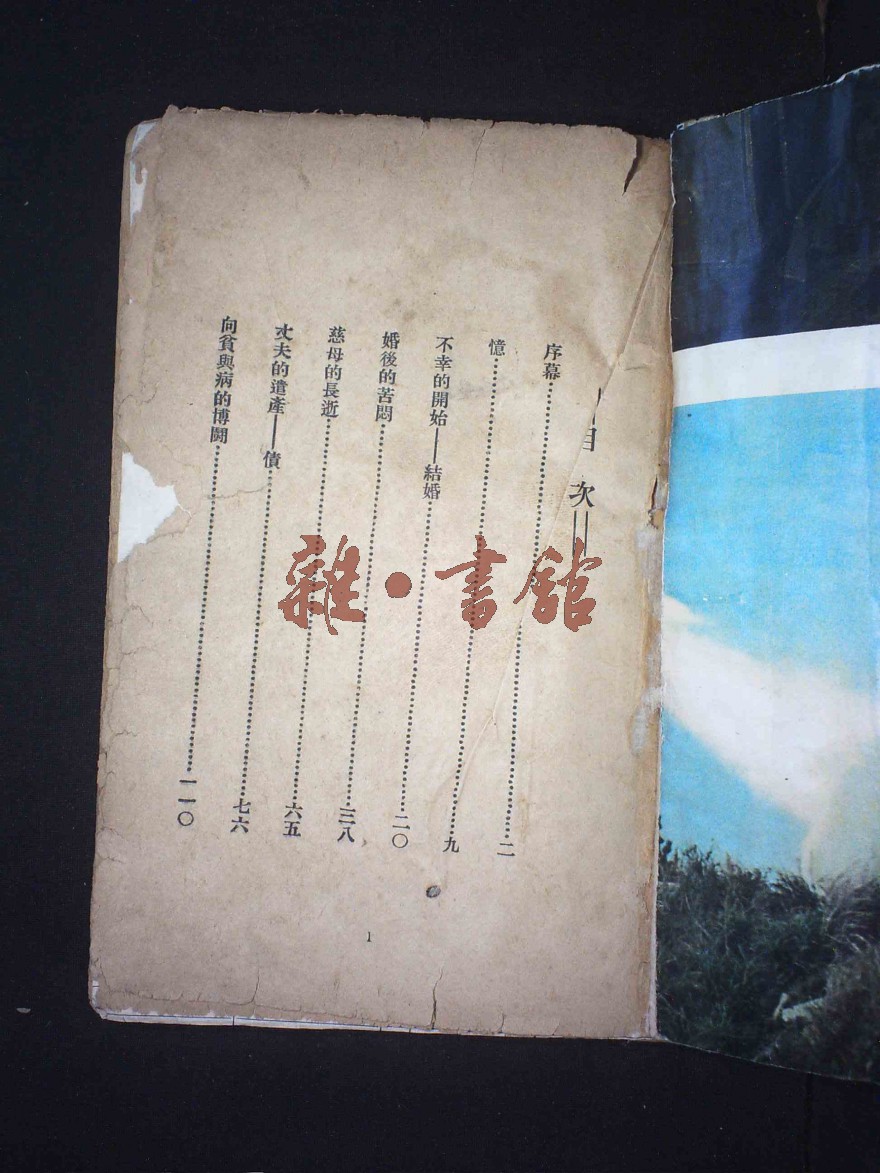 目次
序幕……二
憶……九
不幸的開始——結婚……二〇
婚後的苦悶……三八
慈母的長逝……六五
丈夫的遺產——債……七六
向貧與病的博鬪……一一〇
1
雜·書館